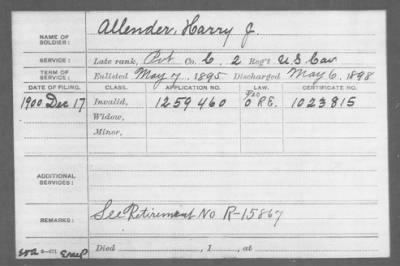 NAME OF SOLDIER: Allender, Harry J.
SERVICE: Late rank, Pvt Co. C, 2 Reg't U.S. Cav
TERM OF SERVICE: Enlisted May 7, 1895 Discharged May 6, 1898
DATE OF FILING. CLASS. APPLICATION NO. LAW. CERTIFICATE NO.
1900 Dec 17 Invalid, 1259460 O R.E. 1023815
Widow,
Minor,
ADDITIONAL SERVICES:
REMARKS: See Retirement No R-15867
Died , 1 , at